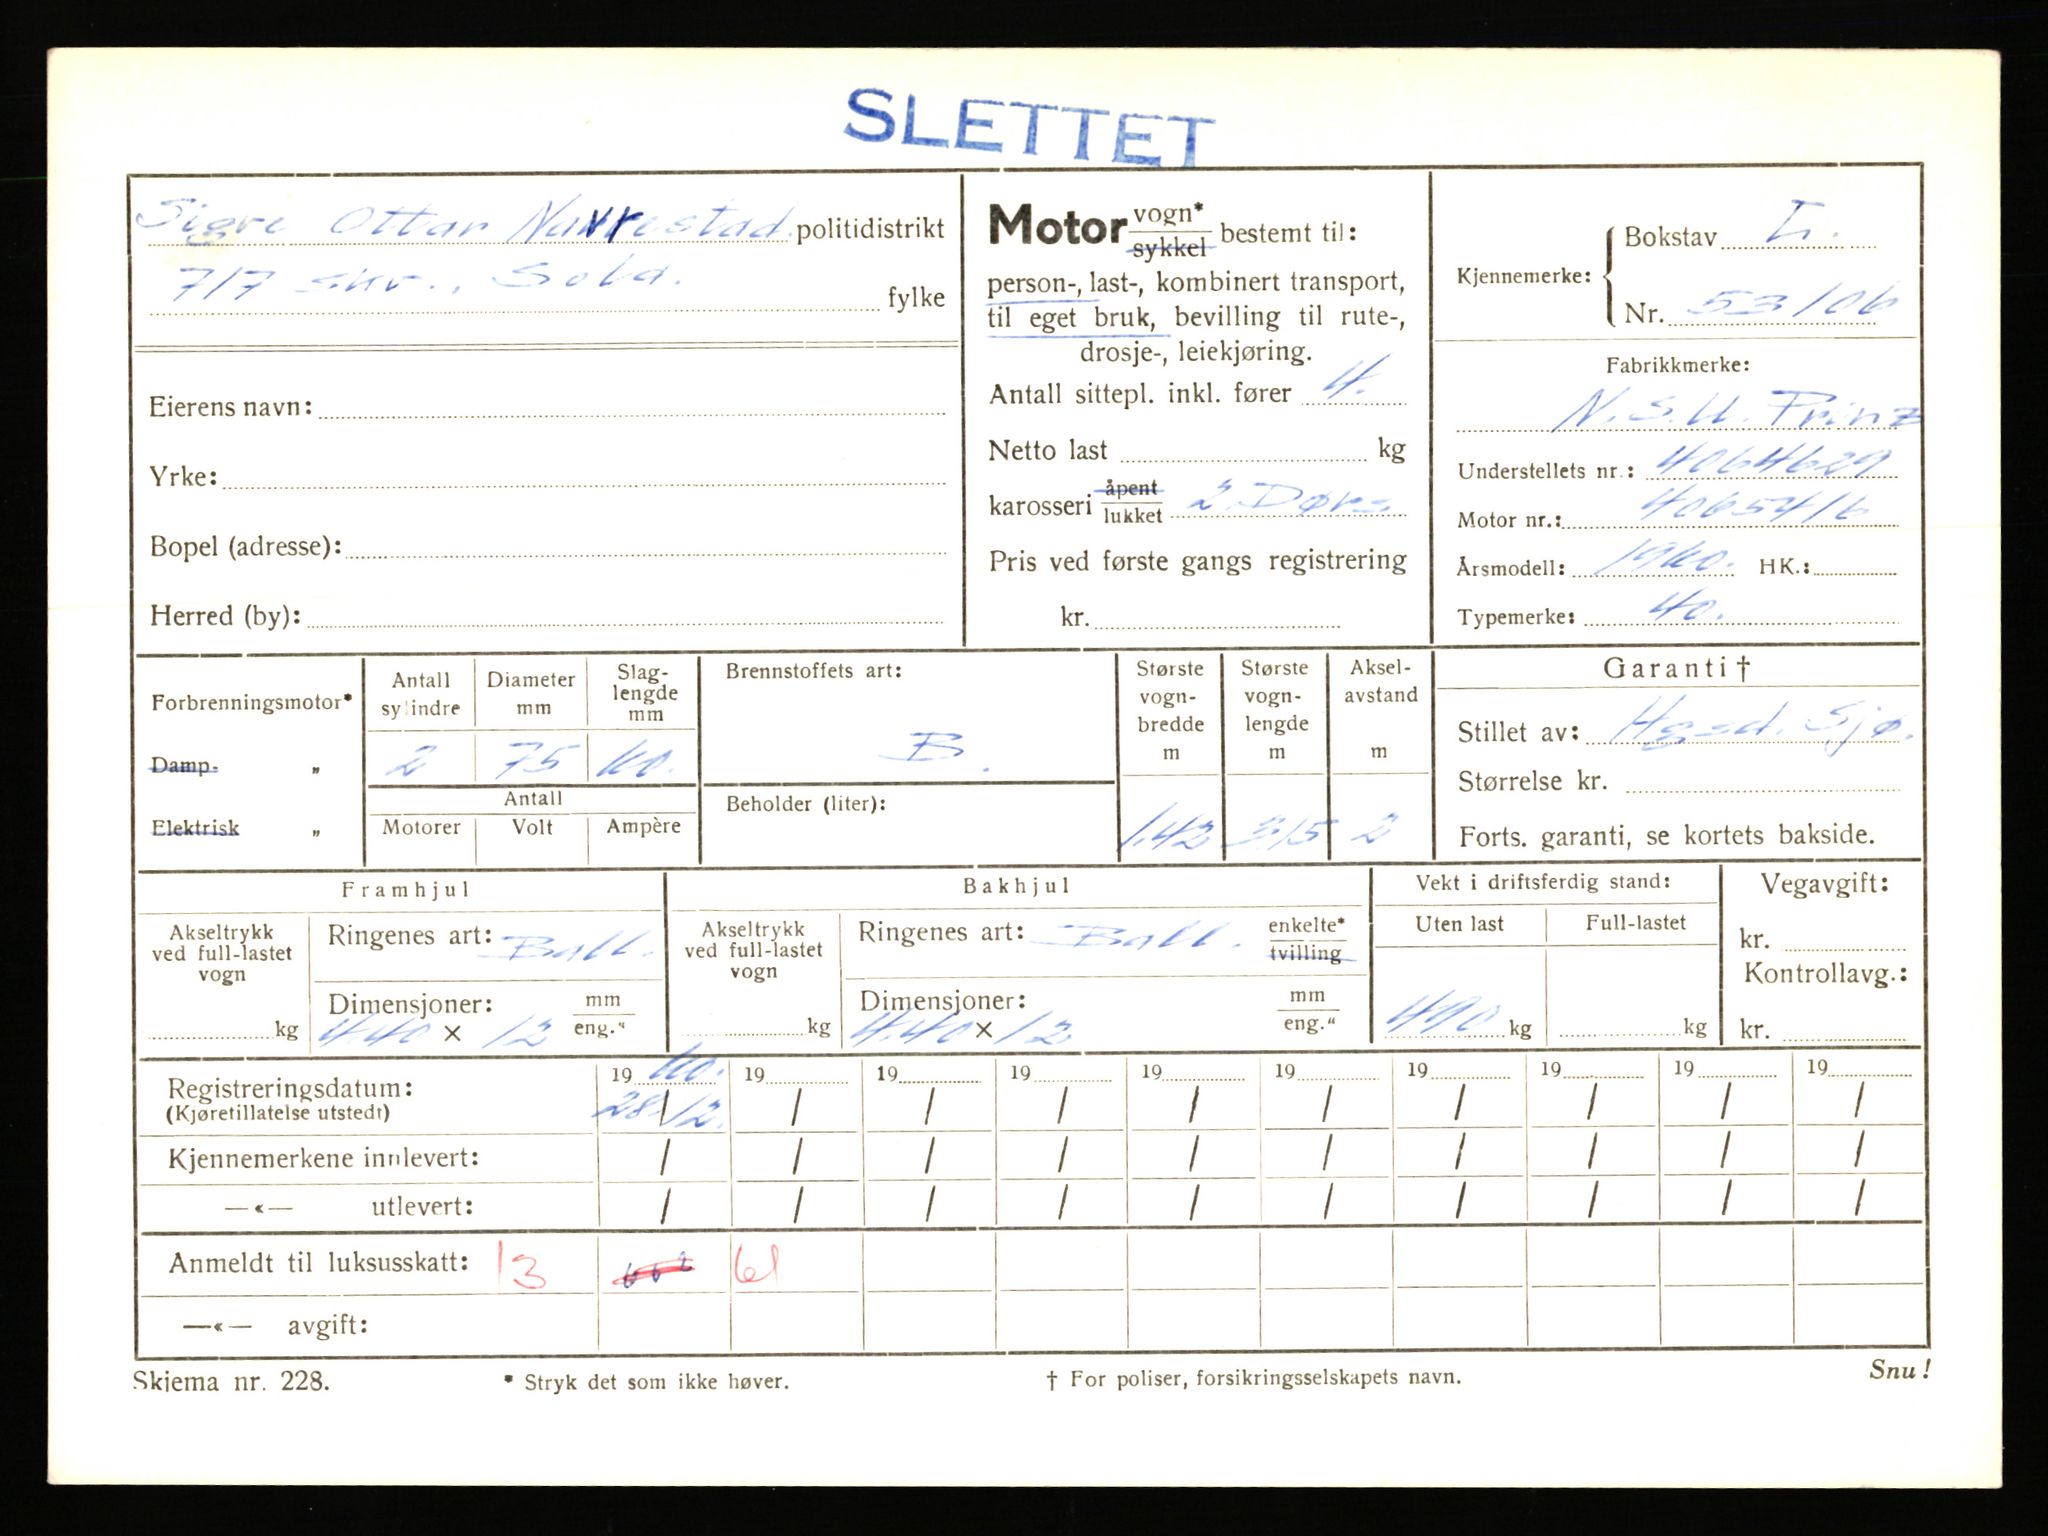 SLETTET
Sigve Ottar Navrestad. politidistrikt
717 skv., Sola. fylke
Eierens navn:
Yrke:
Bopel (adresse):
Herred (by):
Motor vogn*
sykkel bestemt til:
person-, last-, kombinert transport,
til eget bruk, bevilling til rute-,
drosje-, leiekjøring.
Antall sittepl. inkl. fører 4.
Netto last kg
karosseri åpent
lukket 2 Dørs
Pris ved første gangs registrering
kr.
Kjennemerke: Bokstav L.
Nr. 53106
Fabrikkmerke:
N.S.U. Prinz
Understellets nr.: 4064629
Motor nr.: 4065416
Årsmodell: 1960. HK.:
Typemerke: 40.
Forbrenningsmotor*
Damp- „
Elektrisk „
Antall sylindre Diameter mm Slag-lengde mm
2 75 66.
Antall
Motorer Volt Ampère
Brennstoffets art:
B.
Beholder (liter):
Største vogn-bredde m Største vogn-lengde m Aksel-avstand m
1,42 315 2
Garanti †
Stillet av: Hgsd. Sjø.
Størrelse kr.
Forts. garanti, se kortets bakside.
Framhjul
Akseltrykk ved full-lastet vogn
kg
Ringenes art: Ball.
Dimensjoner: mm
4.40 × 12 eng.“
Bakhjul
Akseltrykk ved full-lastet vogn
kg
Ringenes art: Ball. enkelte*
tvilling
Dimensjoner: mm
4.40 × 12 eng.“
Vekt i driftsferdig stand:
Uten last Full-lastet
490 kg kg
Vegavgift:
kr.
Kontrollavg.:
kr.
Registreringsdatum: 19 60. 19 19 19 19 19 19 19 19 19
(Kjøretillatelse utstedt) 28/12. / / / / / / / / /
Kjennemerkene innlevert: / / / / / / / / / /
—«— utlevert: / / / / / / / / / /
Anmeldt til luksusskatt: 13 61
—«— avgift:
Skjema nr. 228. * Stryk det som ikke høver. † For poliser, forsikringsselskapets navn. Snu!